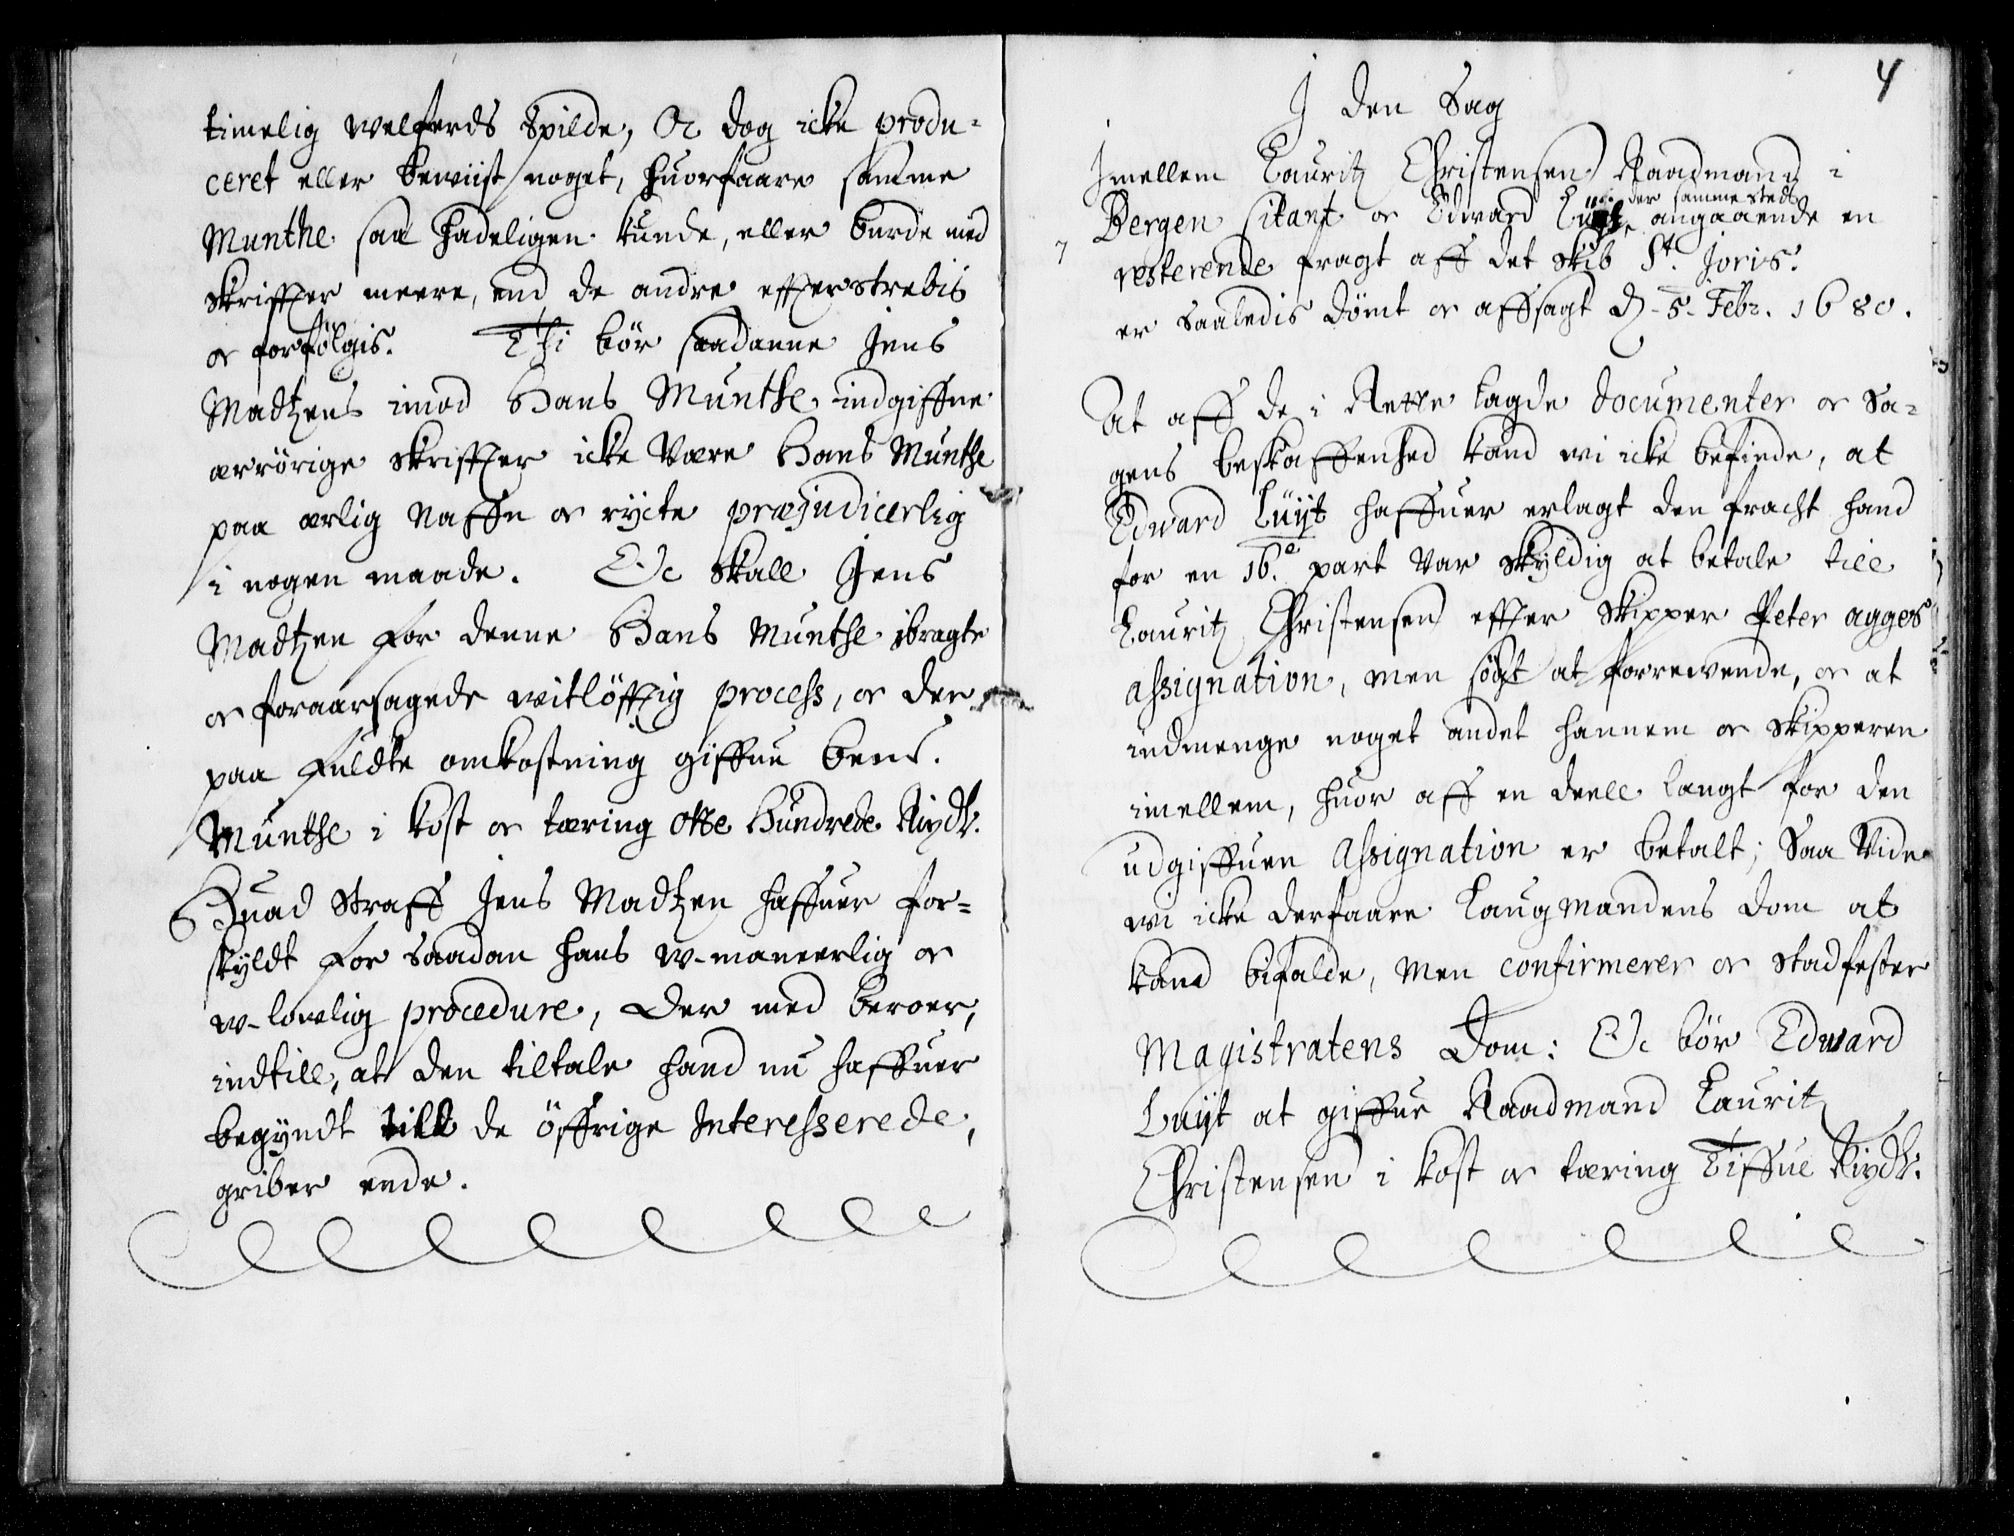 timelig welferds Spilde, Oc dog icke produ-
ceret eller beviist noget, huorfaare samme
Munthe saa hadeligen kunde, eller burde med
skriffter meere, end de andre effterstrebis
oc forfölgis. Thi bör saadanne Jens
Madtzens imod Hans Munthe indgiffne
ærrörige skriffter icke være Hans Munthe
paa ærlig Naffn oc rycte præjudicerlig
i nogen maade. Oc skall Jens
Madtzen for denne Hans Munthe ibragte
oc foraarsagede witlöfftig process, oc der
paa fuldte omkostning giffue bem.te
Munthe i kost oc tæring Otte Hundrede Rixdlr.
Huad Straff Jens Madtzen haffuer for-
skyldt for saadan hans w-maneerlig oc
w-lovelig procedure, der med beroer,
indtill, at den tiltale hand nu haffuer
begyndt till de öffrige Interesserede,
griber ende.
4
J den Sag
Jmellem Lauritz Christensen Raadmand i
der sammestedz
Bergen Citant oc Edward Luÿt angaaende en
7 resterende fragt aff det skib St. Joris.
er saaledis dömt oc affsagt d. 5. Febr. 1680.
At aff de i Rette lagde documenter oc Sa-
gens beskaffenhed kand wi icke befinde, at
Edward Luÿt haffuer erlagt den fracht hand
for en 16.e part var skyldig at betale till
Lauritz Christensen effter Skipper Peter agges
assignation, men sögt at forrewende, oc at
indmenge noget andet hannem oc Skipperen
imellem, huor aff en deell langt for den
udgiffuen Assignation er betalt; Saa Vide
wi icke derfaare Laugmandens dom at
kand bifalde, men confirmerer oc stadfester
Magistratens Dom: Oc bör Edward
Luÿt at giffue Raadmand Lauritz
Christensen i kost oc tæring Tiffue Rixdlr.